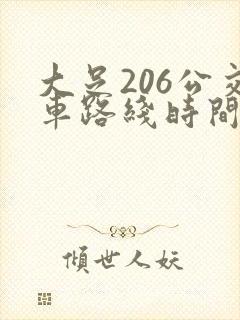 大足206公交
車路綫時間
傾世人妖